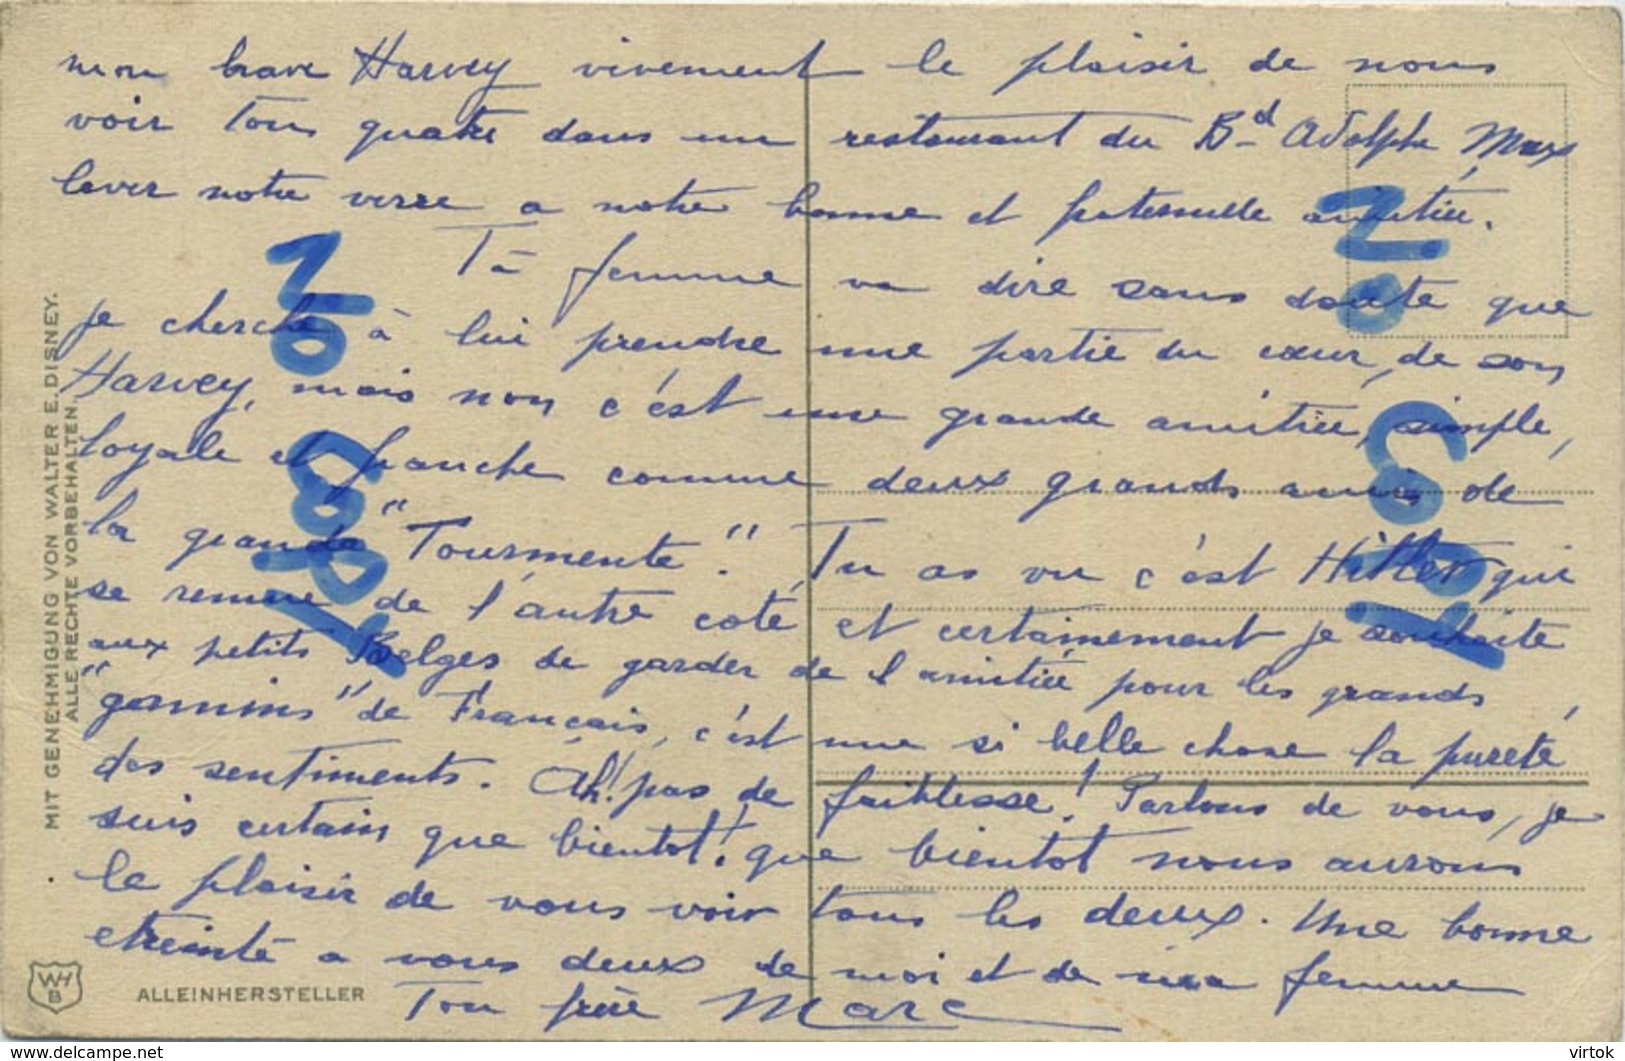 mon brave Harvey vivement le plaisir de nous
voir tous quatre dans un restaurant du Bd Adolphe Max
lever notre verre a notre bonne et fraternelle amitiée.
Ta femme va dire sans doute que
je cherche à lui prendre une partie du cœur de son
Harvey, mais non c'est une grande amitiée, simple,
loyale et franche comme deux grands amis de
la grande "Tourmente". Tu as vu c'est Hitler qui
se remue de l'autre coté et certainement je souhaite
aux petits Belges de garder de l'amitiée pour les grands
"gamins" de Français, c'est une si belle chose la pureté
des sentiments. Ah! pas de faiblesse! Parlons de vous, je
suis certain que bientot! que bientot nous aurons
le plaisir de vous voir tous les deux. Une bonne
etreinte a vous deux de moi et de ma femme
Ton frère Marc
MIT GENEHMIGUNG VON WALTER E. DISNEY.
ALLE RECHTE VORBEHALTEN.
WH
B
ALLEINHERSTELLER
No Copy
No Copy
https://www.delcampe.net
virtok